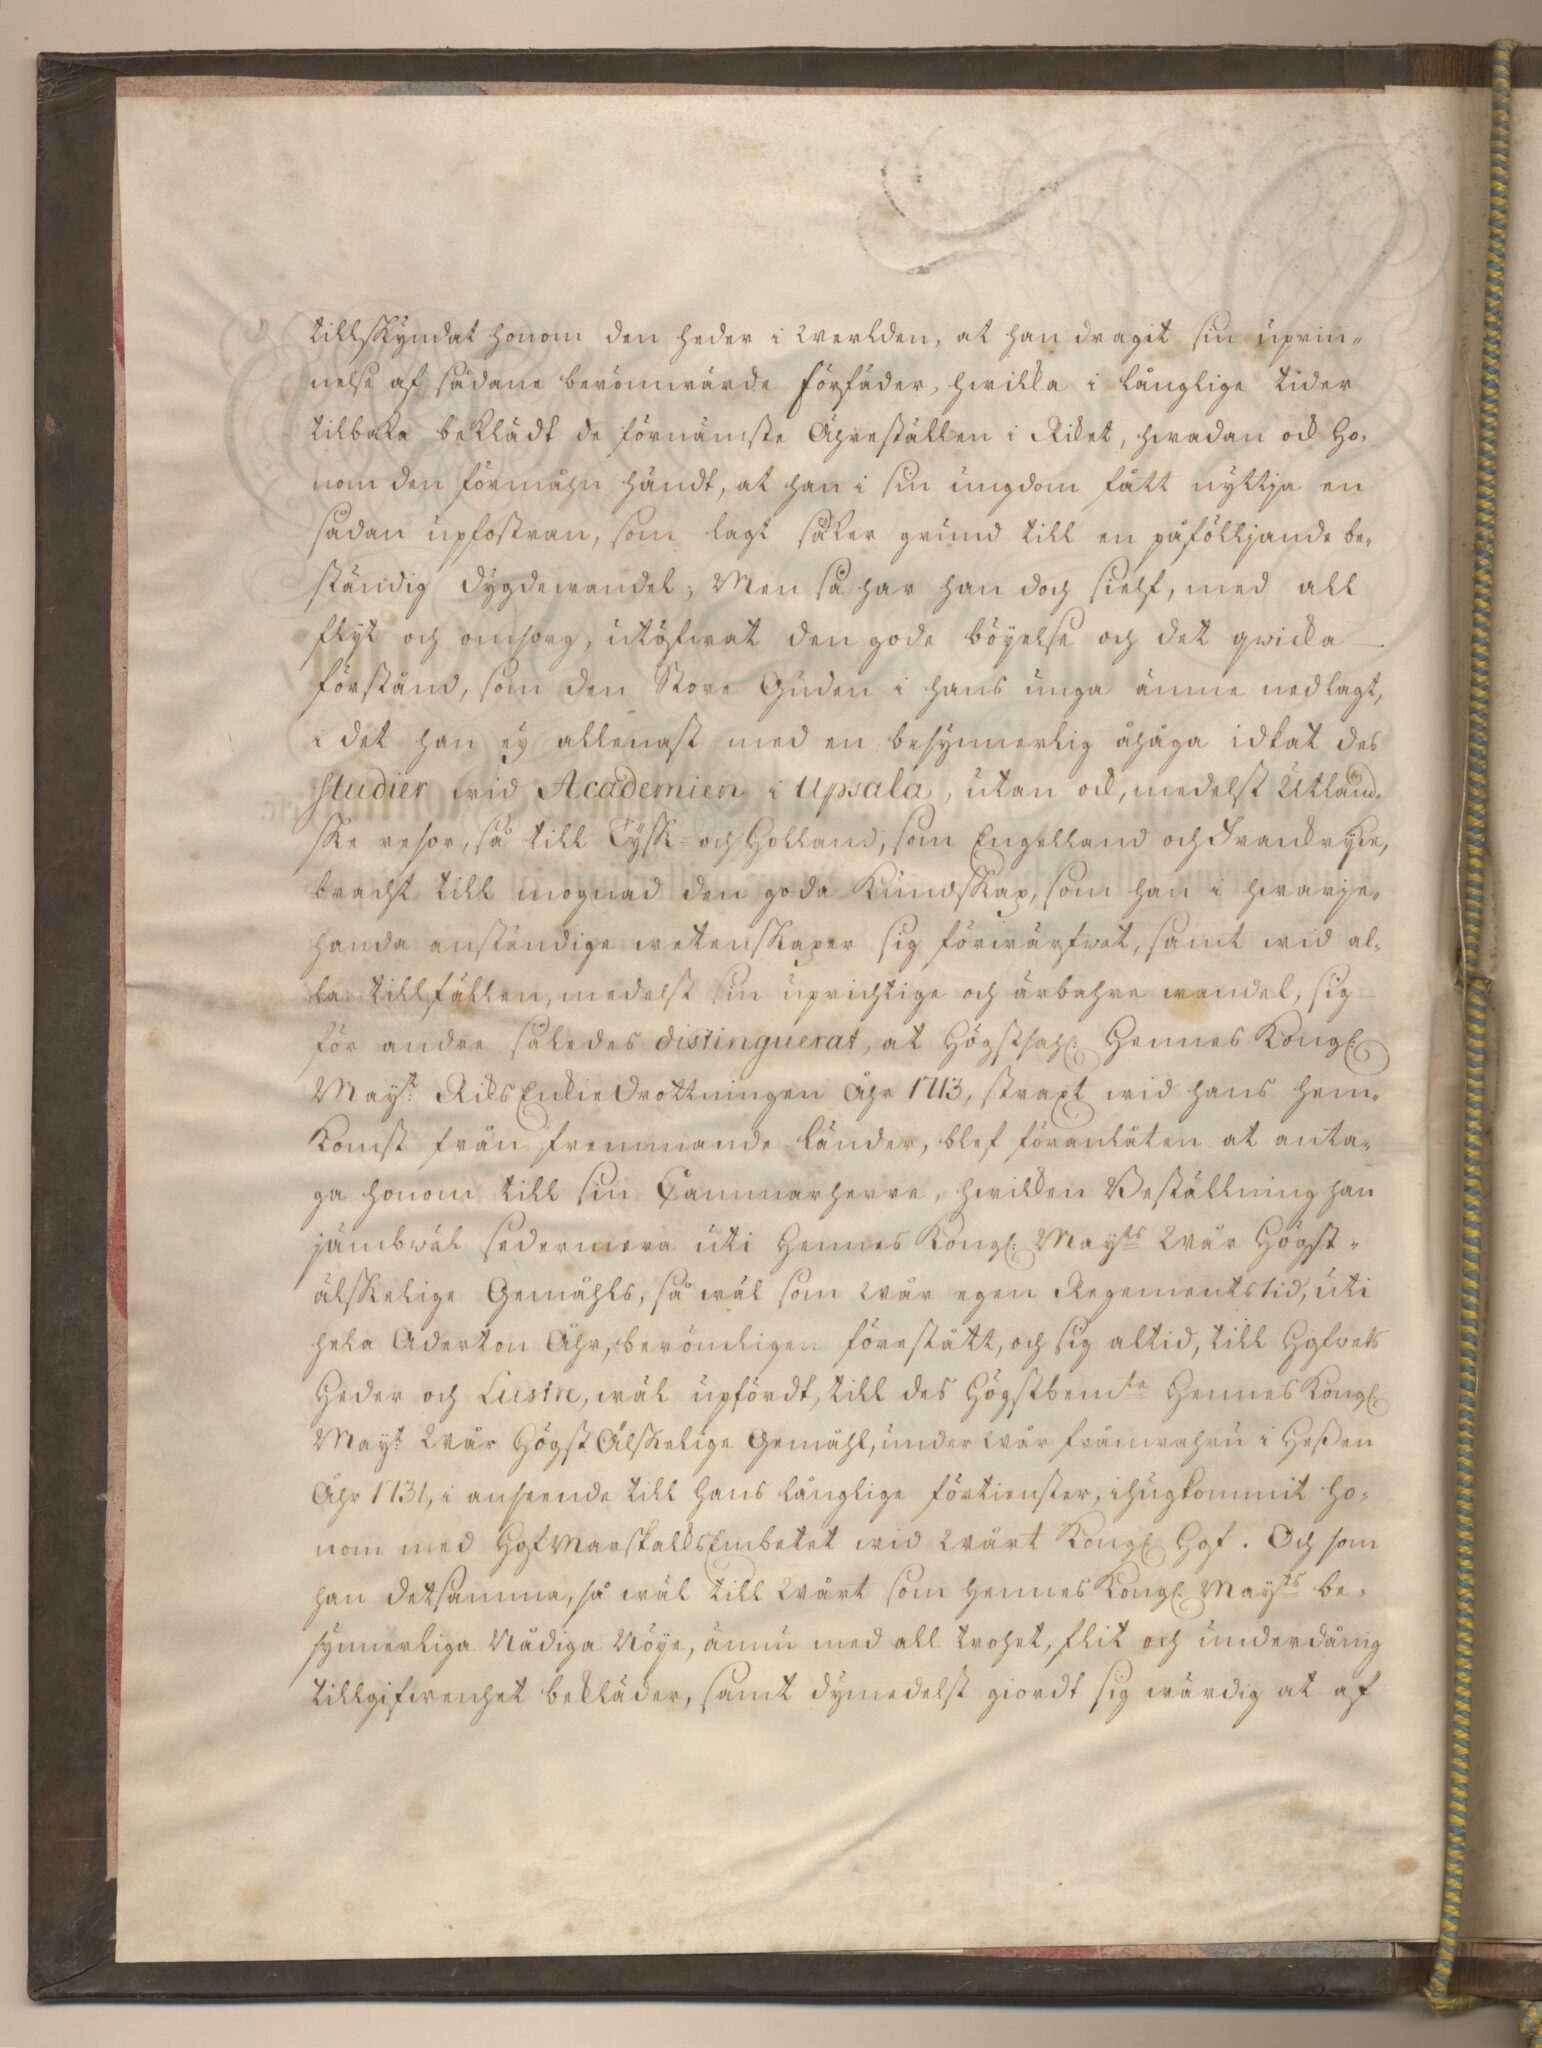 tillskyndat honom den heder i werlden, at han dragit sin uprin-
nelse af sådane berömwärde förfäder, hwilka i långlige tider
tilbaka beklädt de förnämste Ähreställen i Riket, hwadan ock ho-
nom den förmåhn händt, at han i sin ungdom fått nyttja en
sådan upfostran, som lagt säker grund till en påfölljande be-
ständig dygdewandel; Men så har han doch sielf, med all
flijt och omsorg, utöfwat den gode böyelse och det qwicka
förstånd, som den Store Guden i hans unga ämne nedlagt,
i det han ey allenast med en besynnerlig åhåga idkat des
studier wid Academien i Upsala, utan ock, medelst Utländ-
ske resor, så till Tysk- och Holland, som Engelland och Franckryke,
bracht till mognad den goda Kundskap, som han i hwarje-
handa anständige wetenskaper sig förwärfwat, samt wid al-
la tillfällen, medelst sin uprichtige och ärbahre wandel, sig
för andre således distinguerat, at Högstsahl: Hennes Kongl:
Mayt: RiksEnkieDrottningen Åhr 1713, straxt wid hans hem-
komst från fremmande länder, blef föranlåten at anta-
ga honom till sin Cammarherre, hwilken Beställning han
jämbwäl sedermera uti Hennes Kongl: Mayts Wår Högst-
älskelige Gemåhls, så wäl som Wår egen Regementstid, uti
hela Aderton Åhr, berömligen förestått, och sig altid, till Hofwets
Heder och Lustre, wäl upfördt, till des Högstbemte Hennes Kongl:
Mayt: Wår Högst Älskelige Gemåhl, under Wår frånwahru i Heßen
Åhr 1731, i anseende till Hans långlige förtienster, ihugkommit ho-
nom med HofMarskalksEmbetet wid Wårt Kongl: Hof. Och som
han detsamma, så wäl till Wårt som Hennes Kongl: Mayts be-
synnerliga Nådiga Nöye, ännu med all trohet, flit och underdånig
tillgifwenhet bekläder, samt dymedelst giordt sig wärdig at af